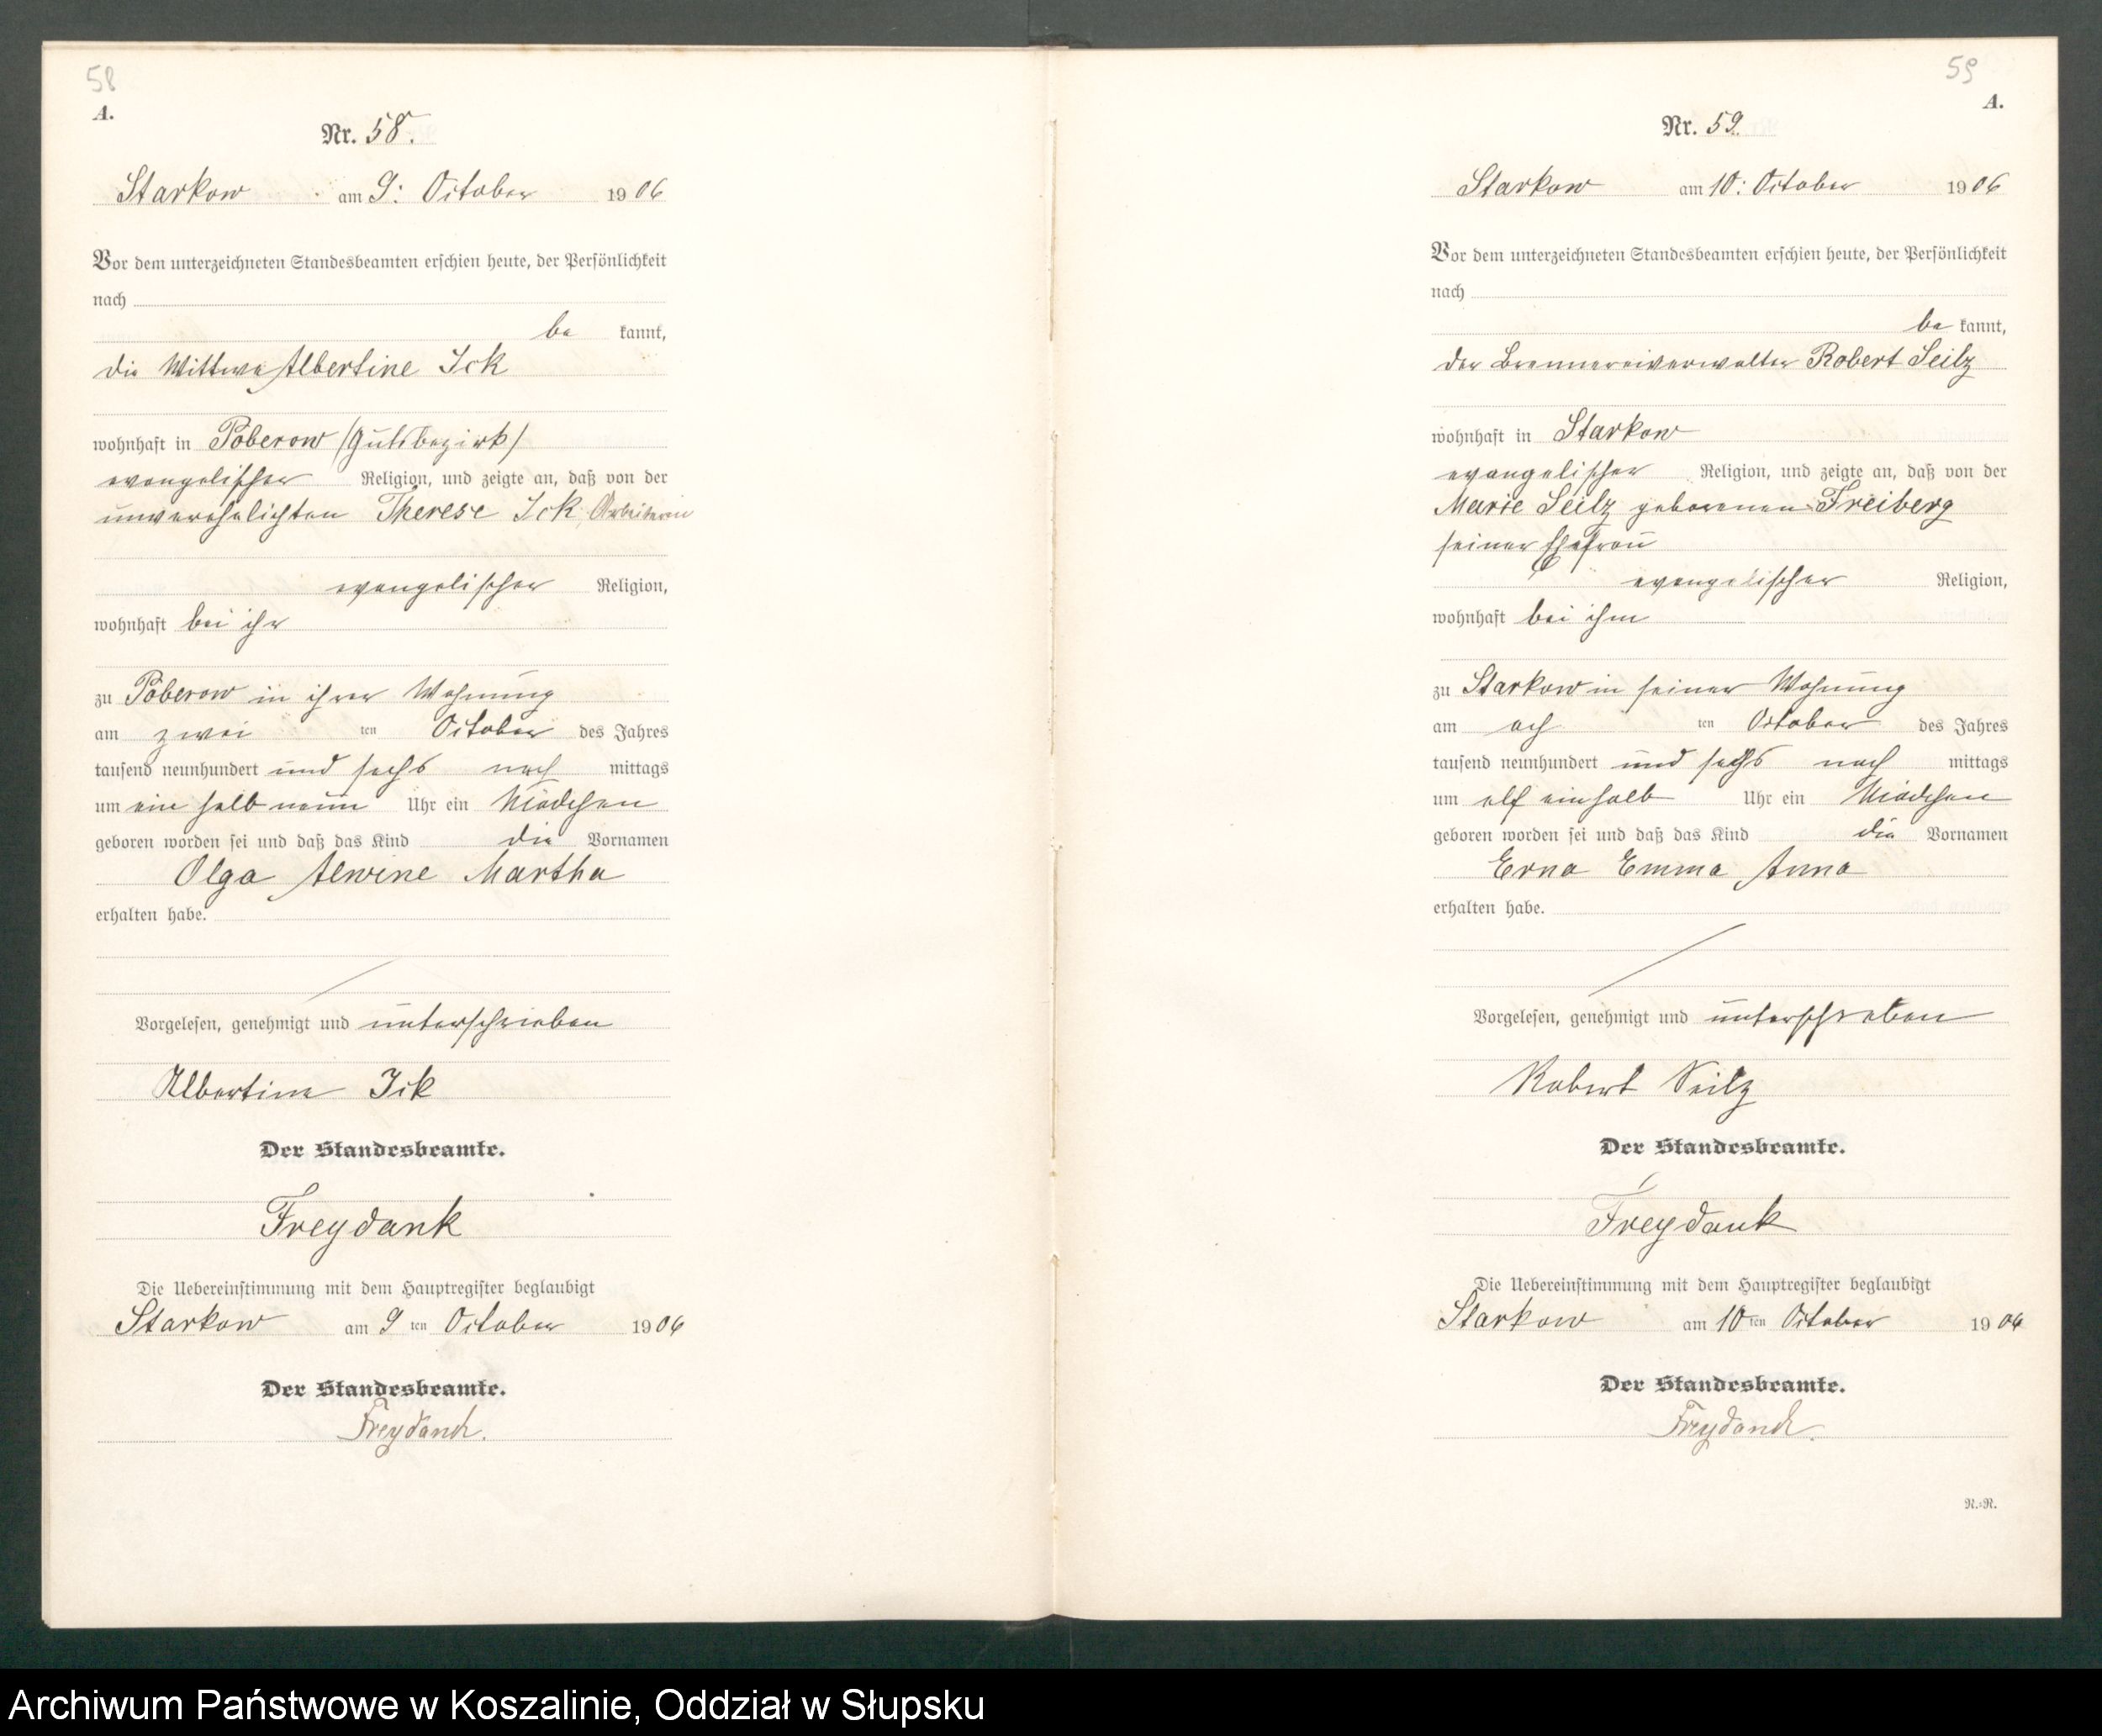 58
A.
Nr. 58.
Starkow am 9: October 1906
Vor dem unterzeichneten Standesbeamten erschien heute, der Persönlichkeit
nach
be kannt,
die Wittwe Albertine Ick
wohnhaft in Poberow (Gutsbezirk)
evangelischer Religion, und zeigte an, daß von der
unverehelichten Therese Ick, Arbeiterin
evangelischer Religion,
wohnhaft bei ihr
zu Poberow in ihrer Wohnung
am zwei ten October des Jahres
tausend neunhundert und sechs nach mittags
um ein halb neun Uhr ein Mädchen
geboren worden sei und daß das Kind die Vornamen
Olga Alwine Martha
erhalten habe.
Vorgelesen, genehmigt und unterschrieben
Albertine Ick
Der Standesbeamte.
Freydank
Die Uebereinstimmung mit dem Hauptregister beglaubigt
Starkow am 9 ten October 1906
Der Standesbeamte.
Freydanck.
59
A.
Nr. 59.
Starkow am 10: October 1906
Vor dem unterzeichneten Standesbeamten erschien heute, der Persönlichkeit
nach
be kannt,
der Brennereiverwalter Robert Seilz
wohnhaft in Starkow
evangelischer Religion, und zeigte an, daß von der
Marie Seilz geborenen Freiberg
seiner Ehefrau
evangelischer Religion,
wohnhaft bei ihm
zu Starkow in seiner Wohnung
am ach ten October des Jahres
tausend neunhundert und sechs nach mittags
um elf einhalb Uhr ein Mädchen
geboren worden sei und daß das Kind die Vornamen
Erna Emma Anna
erhalten habe.
Vorgelesen, genehmigt und unterschreben
Robert Seilz
Der Standesbeamte.
Freydank
Die Uebereinstimmung mit dem Hauptregister beglaubigt
Starkow am 10 ten October 1906
Der Standesbeamte.
Freydanck.
R.=R.
Archiwum Państwowe w Koszalinie, Oddział w Słupsku